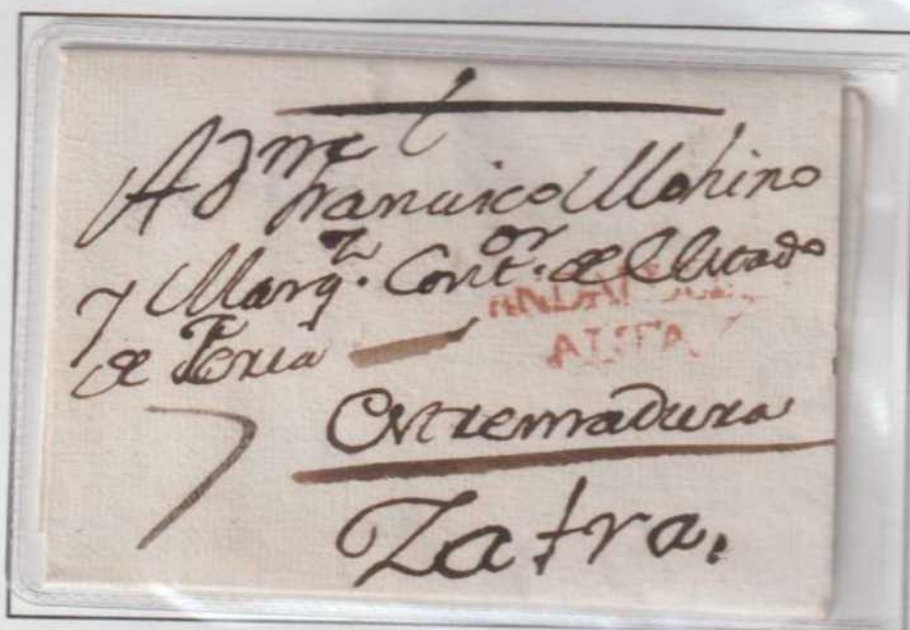 A Dn
Francisco Mohino
y Marqz. Contor. de el Estado
de Feria
ANDALUCIA
ALTA
Extremadura
Zafra.